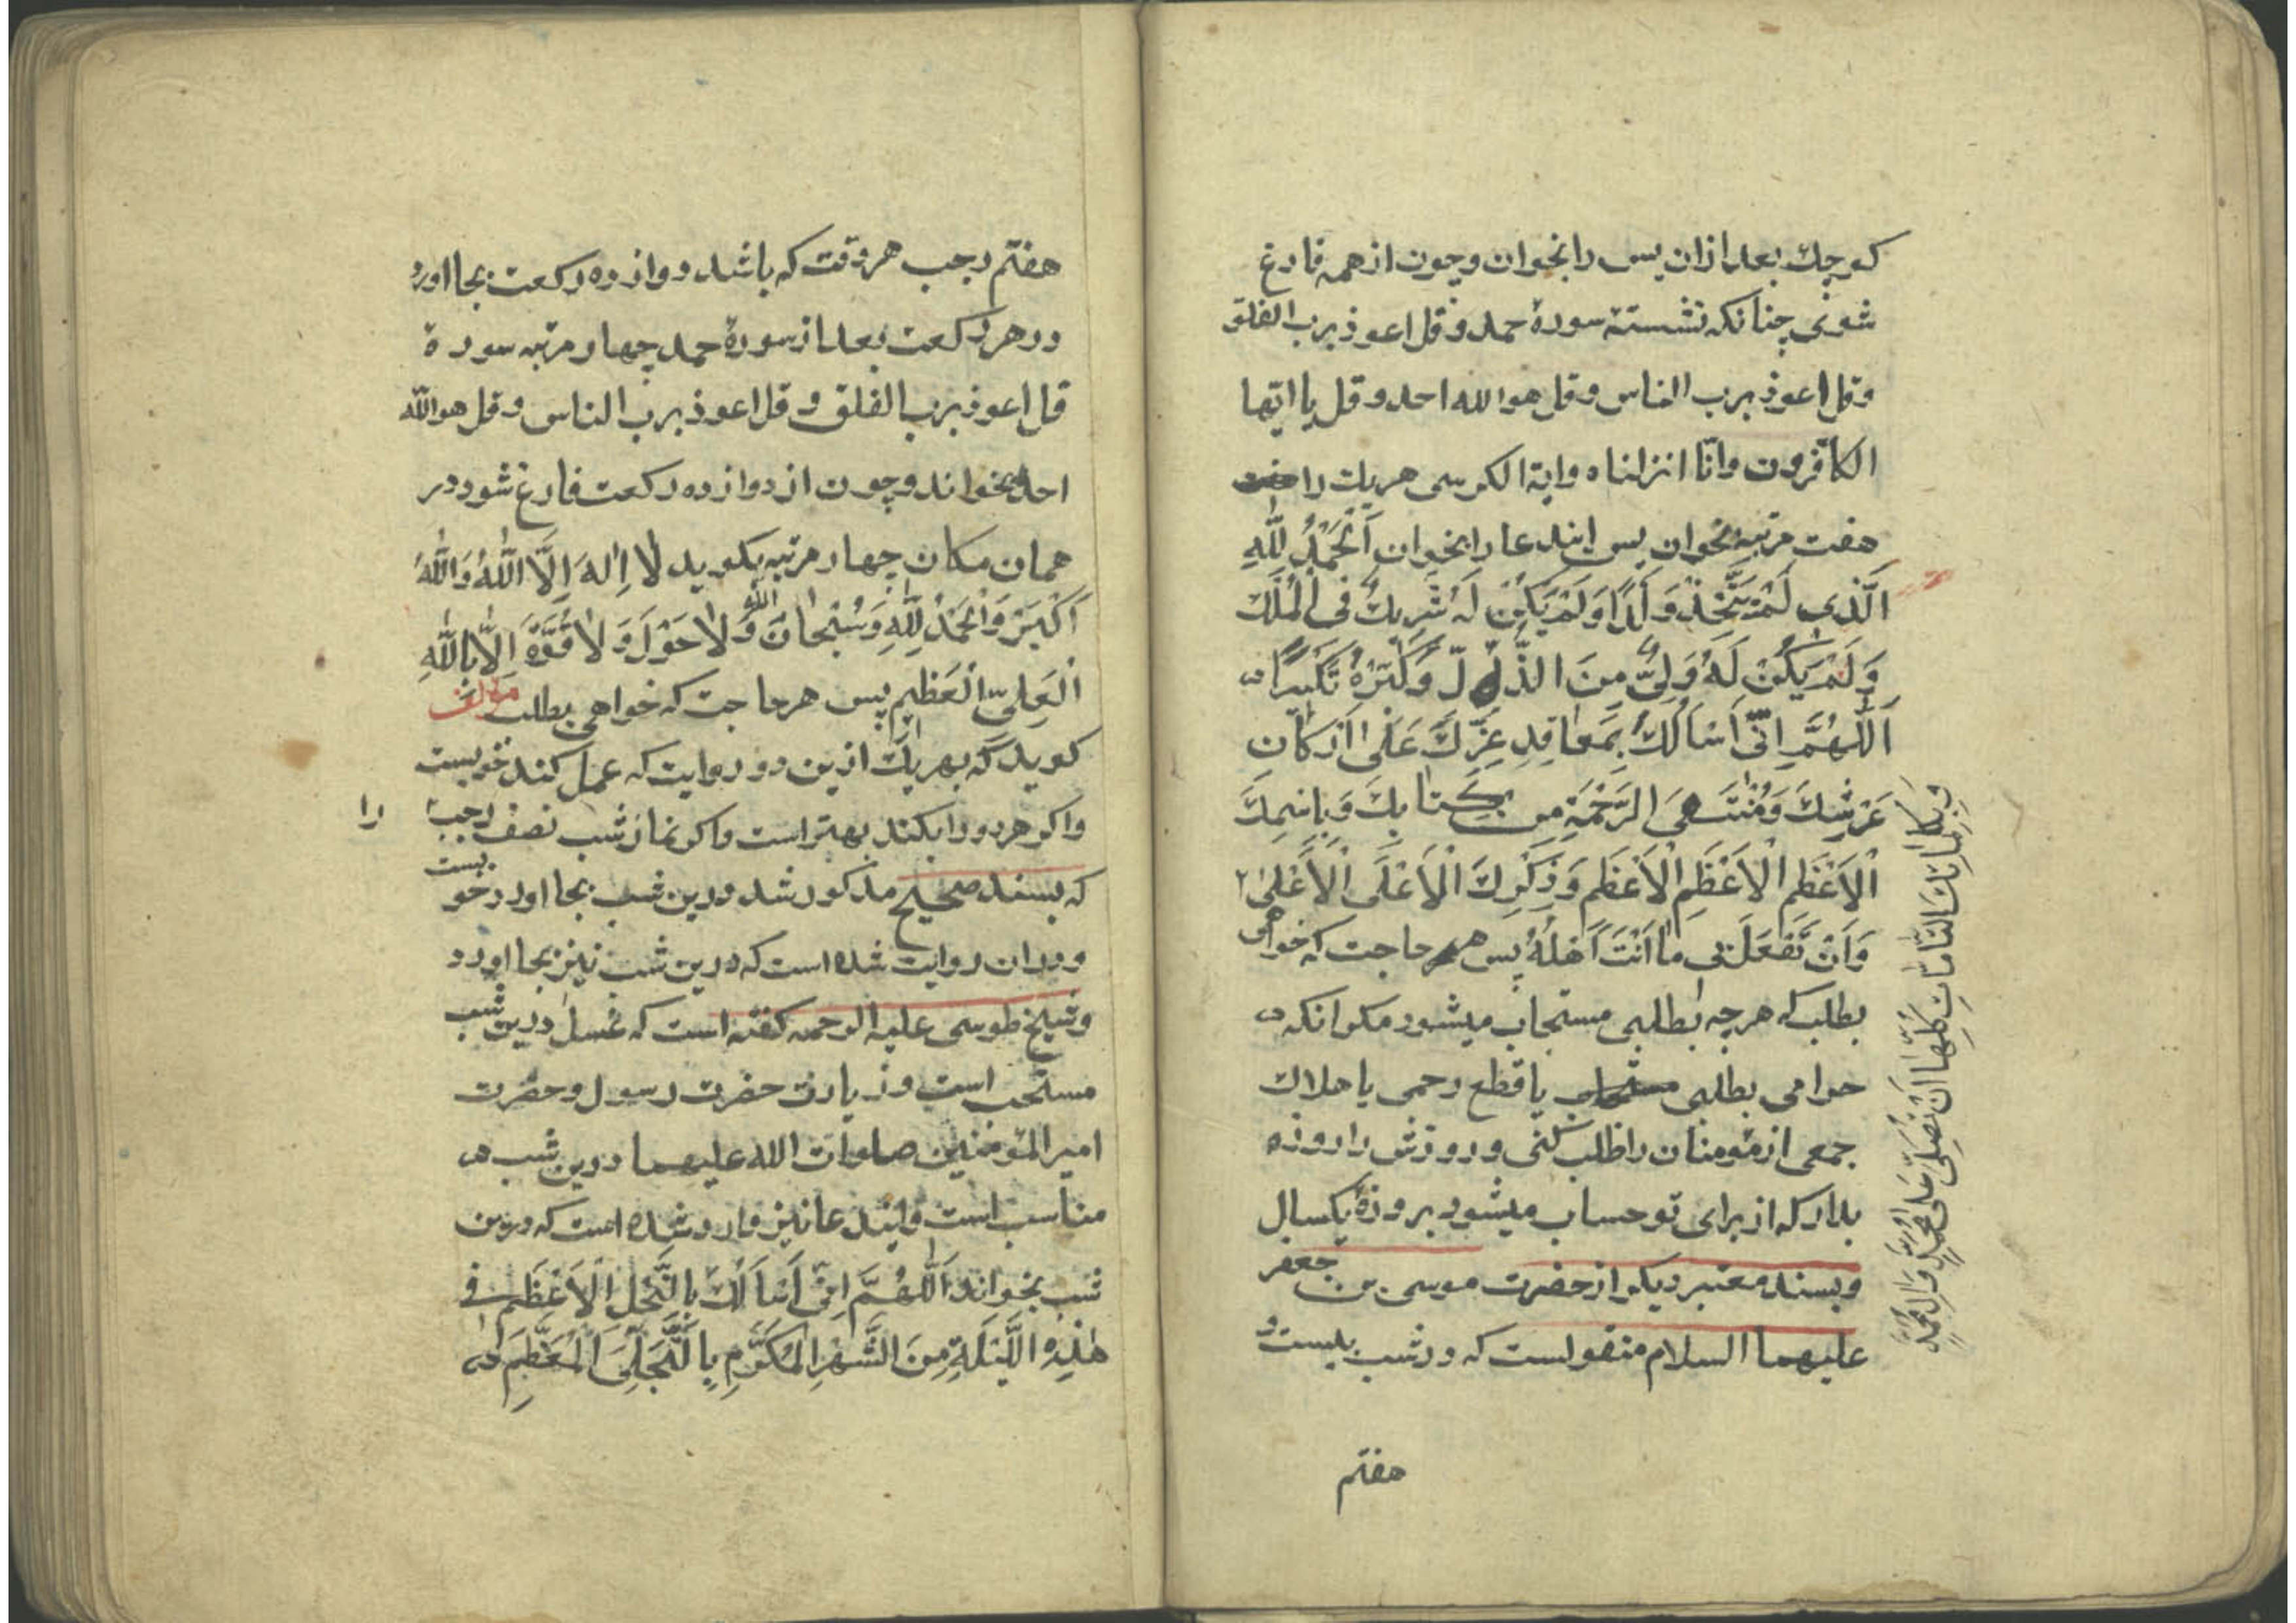 کوچک بعد از ان پس را بخوان و چون از همه فارغ
شوی چنانکه نشستۀ سورۀ حمد و قل اعوذ برب الفلق
وقل اعوذ برب الناس و قل هوالله احد و قل یا ایّها
الکافرون وانّا انزلناه وایة الکرسی هریک را
هفت مرتبه بخوان پس ایندعا را بخوان اَلْحَمْدُ لِلّٰهِ
اَلَّذِی لَمْ یَتَّخِذْ وَلَدًا وَلَمْ یَکُنْ لَهُ شَرِیكٌ فِی الْمُلْكِ
وَلَمْ یَکُنْ لَهُ وَلِیٌّ مِنَ الذُّلِّ وَکَبِّرْهُ تَکْبِیرًا
اَللّٰهُمَّ اِنّی اَسْاَلُكَ بِمَعَاقِدِ عِزِّكَ عَلٰی اَرْکَانِ
عَرْشِكَ وَمُنْتَهَی الرَّحْمَةِ مِن کِتَابِكَ وَبِاسْمِكَ
الْاَعْظَمِ الْاَعْظَمِ الْاَعْظَمِ وَذِکْرِكَ الْاَعْلَی الْاَعْلَی الْاَعْلٰی
وَبِکَلِمَاتِكَ التَّامَّاتِ کُلِّهَا اَنْ تُصَلِّیَ عَلٰی مُحَمَّدٍ وَاٰلِ مُحَمَّدٍ
وَاَنْ تَفْعَلَ بی مٰا اَنْتَ اَهْلُهُ پس هر حاجت که خواهی
بطلب که هرچه بطلبی مستجاب میشود مکر انکه
حرامی بطلبی یا قطع رحمی یا هلاك
جمعی از مؤمنان را طلب کنی و روزش را روزه
بدار که از برای تو حساب میشود بروزۀ یکسال
وبسند معتبر دیکر از حضرت موسی بن جعفر
علیهما السلام منقولست که در شب بیست و
هفتم
هفتم رجب هر وقت که باشد دوازده رکعت بجا اورد
و در هر رکعت بعد از سورۀ حمد چهار مرتبه سورة
قل اعوذ برب الفلق و قل اعوذ برب الناس و قل هوالله
احد بخواند و چون از دوازده رکعت فارغ شود در
همان مکان چهار مرتبه بکوید لا اِلٰهَ اِلَّا اللّٰهُ وَاللّٰهُ
اَکْبَرُ وَالْحَمْدُ لِلّٰهِ وَسُبْحَانَ اللّٰه وَلاٰ حَوْلَ وَلاٰ قُوَّةَ اِلاّٰ بِاللّٰهِ
الْعَلِیِّ الْعَظِیمِ پس هر حاجت که خواهی بطلب مؤلف
کوید که بهر یك ازین دو روایت که عمل کند خوبست
واکر هر دو را بکند بهتر است واکر نماز شب نصف رجب را
که بسند صحیح مذکور شد درین شب بجا اورد خوبست
و در ان روایت شده است که درین شب نیز بجا اورد
وشیخ طوسی علیه الرحمه کفته است که غسل درین شب
مستحب است وزیارت حضرت رسول وحضرت
امیر المؤمنین صلوات الله علیهما درین شب
مناسب است وایندعا نیز وارد شده است که درین
شب بخواند اَللّٰهُمَّ اِنّی اَسْاَلُكَ بِالتَّجَلِ الْاَعْظَمِ فی
هٰذِهِ اللَّیْلَةِ مِنَ الشَّهْرِ الْمُکَرَّمِ بِالتَّجَلِّیَ الْمُعَظَّمِ